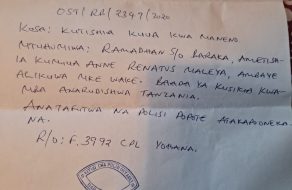 OST/RB/2397/2020
KOSA: KUTISHIA KUUA KWA MANENO
MTUHUMIWA: RAMADHAN S/O BARAKA, AMETISH-
IA KUMUUA ANNE RENATUS MALEYA, AMBAYE
ALIKUWA MKE WAKE. BAADA YA KUSIKIA KWA-
MBA ANARUDISHWA TANZANIA.
ANATAFUTWA NA POLISI POPOTE ATAKAPOONEKA-
NA.
R/O: F.3992 CPL YOHANA